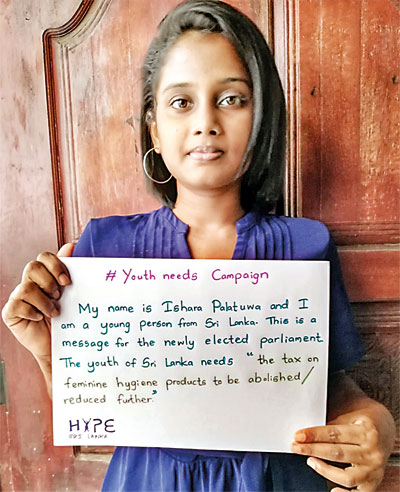 # Youth needs Campaign
My name is Ishara Palatuwa and I
am a young person from Sri Lanka. This is a
message for the newly elected parliament
The youth of Sri Lanka needs "the tax on
feminine hygiene products to be abolished/
reduced further"
HYPE
SRI LANKA